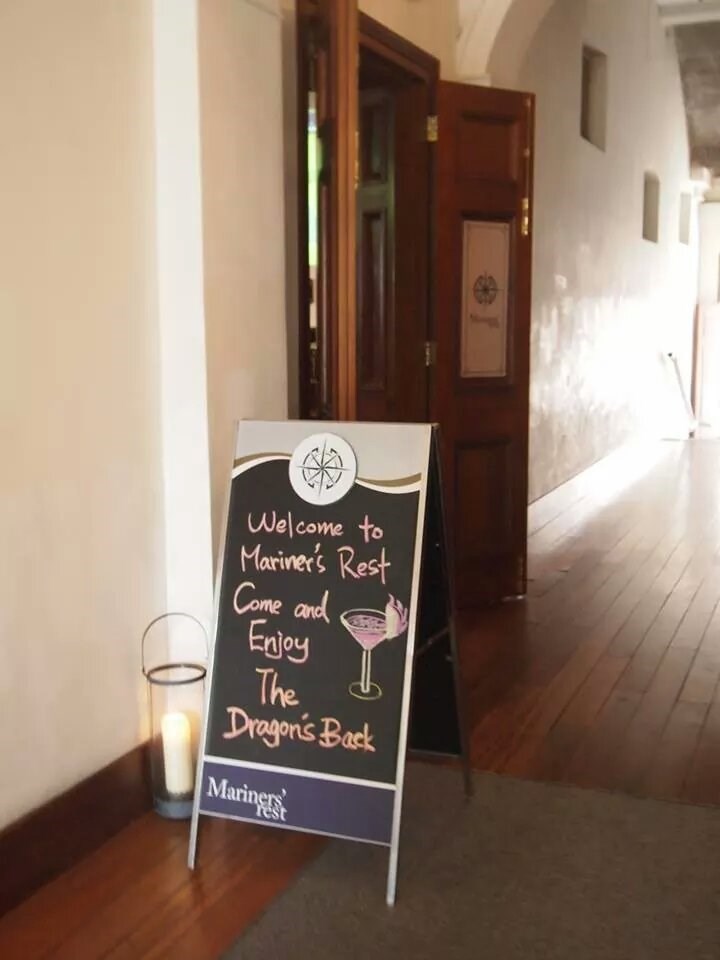 Welcome to
Mariner's Rest
Come and
Enjoy
The
Dragon's Back
Mariners'
rest